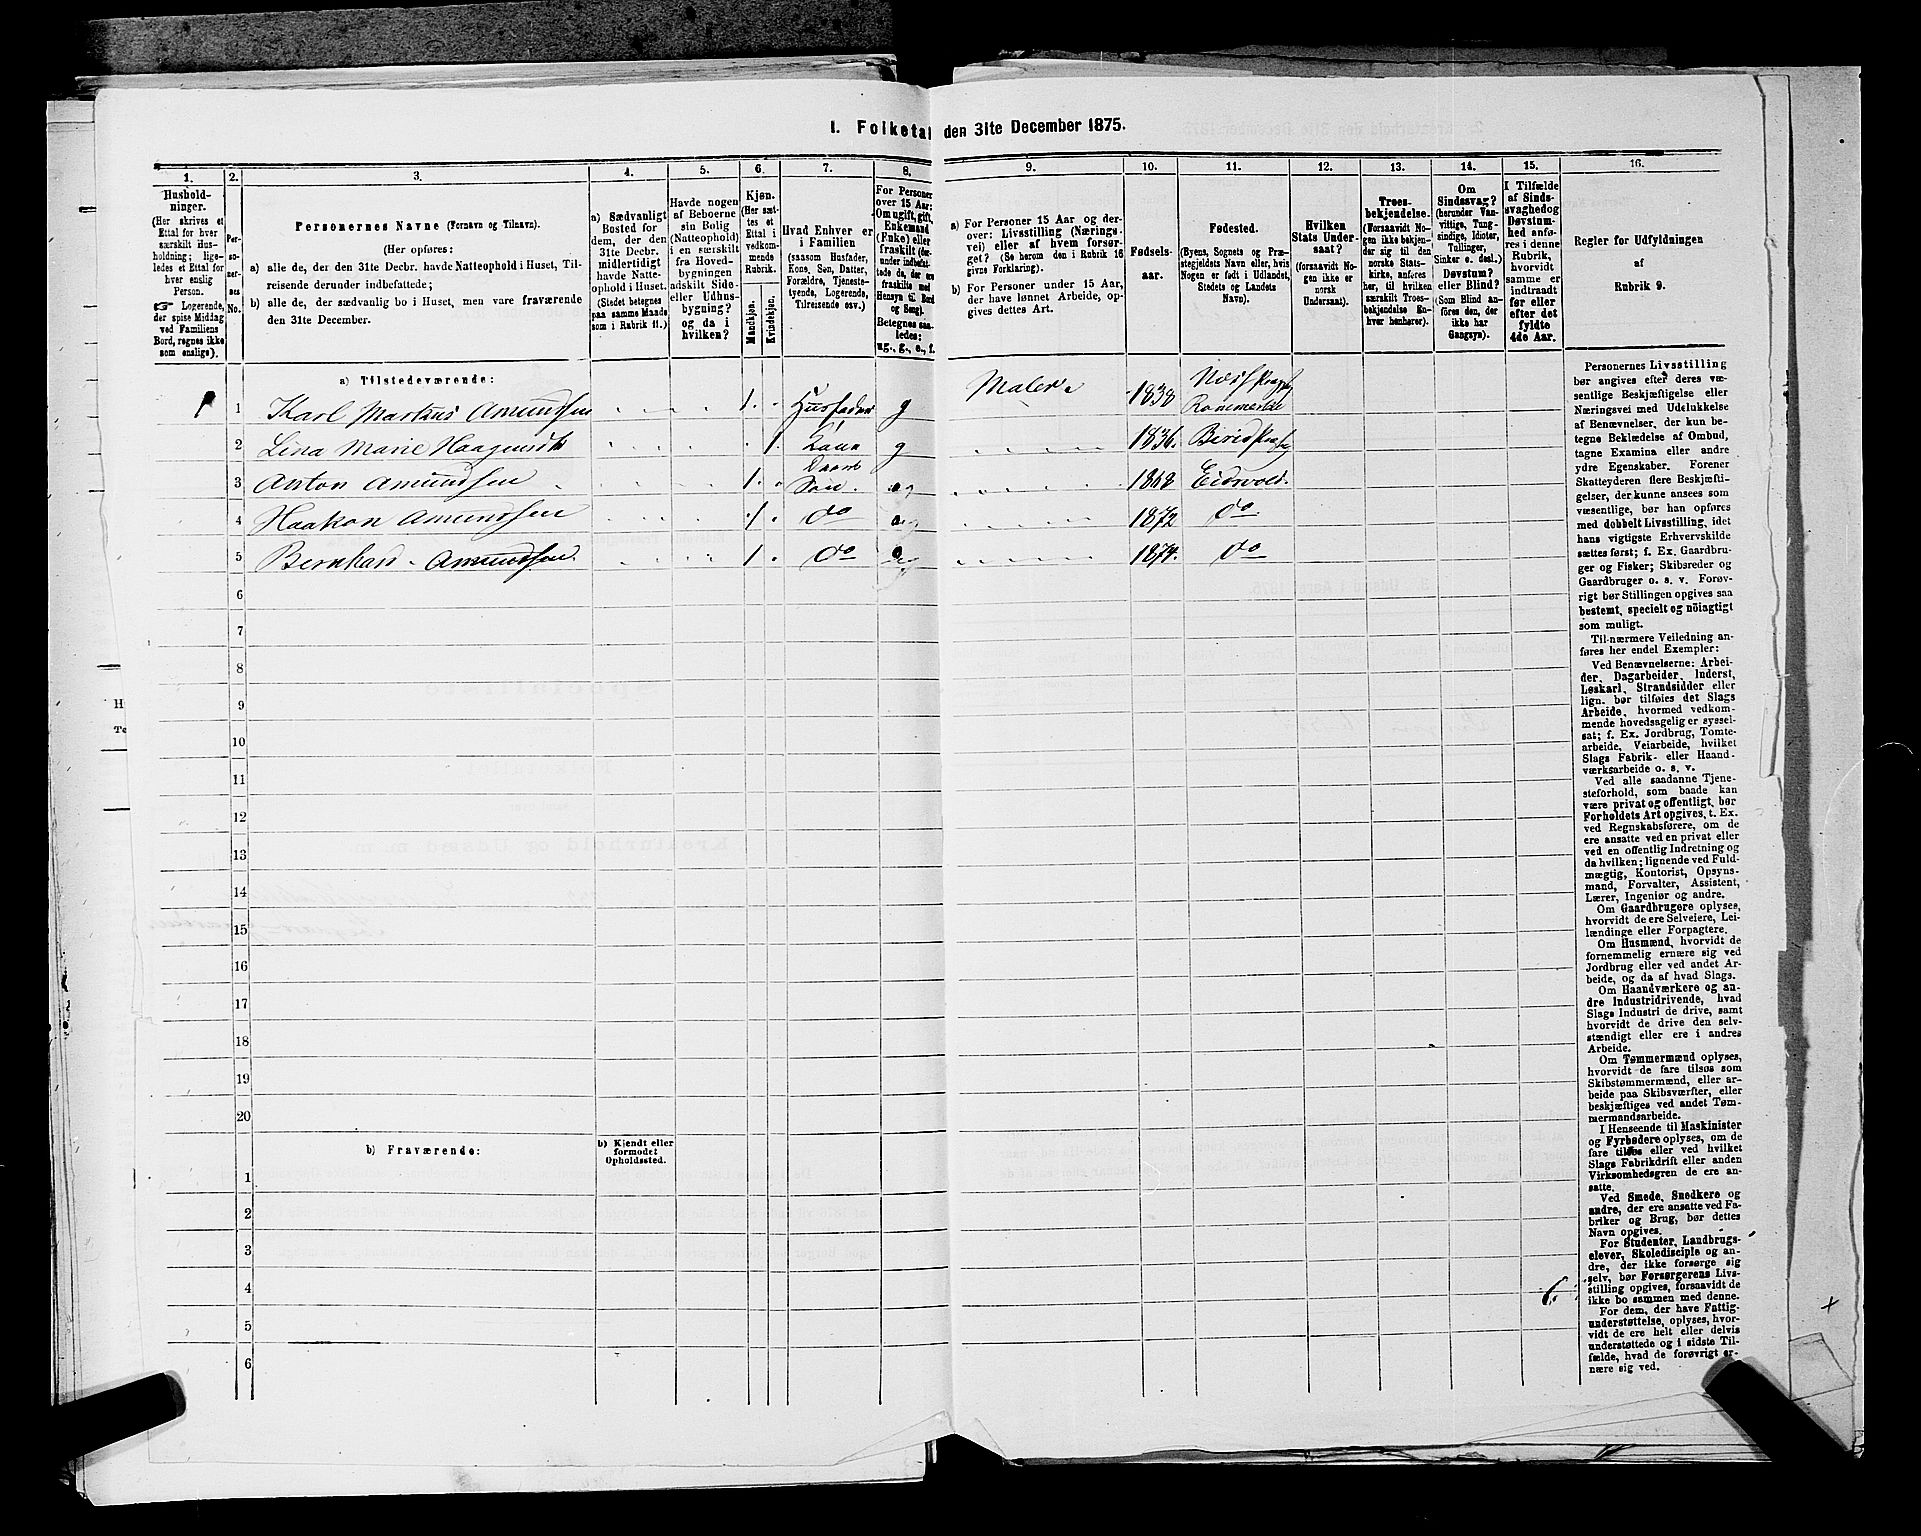 I. Folketal den 31te December 1875.
1. 2. 3. 4. 5. 6. 7. 8. 9. 10. 11. 12. 13. 14. 15. 16.
Hushold-
ninger.
(Her skrives et
Ettal for hver
særskilt Hus-
holdning; lige-
ledes et Ettal for
hver enslig
Person.
☞ Logerende,
der spise Middag
ved Familiens
Bord, regnes ikke
som enslige).
Per-
so-
ner-
nes
No.
Personernes Navne (Fornavn og Tilnavn).
(Her opføres:
a) alle de, der den 31te Decbr. havde Natteophold i Huset, Til-
reisende derunder indbefattede;
b) alle de, der sædvanlig bo i Huset, men vare fraværende
den 31te December.
a) Sædvanligt
Bosted for
dem, der den
31te Decbr.
midlertidigt
havde Natte-
ophold i Huset.
(Stedet betegnes
paa samme Maade
som i Rubrik 11.)
Havde nogen
af Beboerne
sin Bolig
(Natteophold)
i en særskilt
fra Hoved-
bygningen
adskilt Side-
eller Udhus-
bygning?
og da i
hvilken?
Kjøn.
(Her sæt-
tes et
Ettal i
vedkom-
mende
Rubrik.
Mandkjøn.
Kvindekjøn.
Hvad Enhver er
i Familien
(saasom Husfader,
Kone, Søn, Datter,
Forældre, Tjeneste-
tyende, Logerende,
Tilreisende osv.)
For Personer
over 15 Aar:
Om ugift, gift,
Enkemand
(Enke) eller
fraskilt (der-
under indbefat-
tede de, der ere
fraskilte med
Hensyn til Bord
og Seng).
Betegnes saa-
ledes:
ug., g., e., f.
a) For Personer 15 Aar og der-
over: Livsstilling (Nærings-
vei) eller af hvem forsør-
get? (Se herom den i Rubrik 16
givne Forklaring).
b) For Personer under 15 Aar,
der have lønnet Arbeide, op-
gives dettes Art.
Fødsels-
aar.
Fødested.
(Byens, Sognets og Præ-
stegjeldets Navn eller, hvis
Nogen er født i Udlandet,
Stedets og Landets
Navn).
Hvilken
Stats Under-
saat?
(forsaavidt No-
gen ikke er
norsk
Undersaat).
Troes-
bekjendelse.
(Forsaavidt No-
gen ikke bekjen-
der sig til den
norske Stats-
kirke, anføres
her, til hvilken
særskilt Troes-
bekjendelse En-
hver henhører).
Om
Sindssvag?
(herunder Van-
vittige, Tung-
sindige, Idioter,
Tullinger,
Sinker o. desl.)
Døvstum?
eller Blind?
(Som Blind an-
føres den, der
ikke har
Gangsyn).
I Tilfælde
af Sinds-
svaghed og
Døvstum-
hed anfø-
res i denne
Rubrik,
hvorvidt
samme er
indtraadt
før eller
efter det
fyldte
4de Aar.
Regler for Udfyldningen
af
Rubrik 9.
a) Tilstedeværende:
1 1 Karl Markus Amundsen 1. Husfader g Maler 1838
2 Lina Marie 1. Kone g 1836. Birid
3 Anton Amundsen 1. Søn 1868 Eidsvold.
4 Haakon Amundsen 1. do 1872 do
5 Bernhard Amundsen. 1. do 1874. do
6
7
8
9
10
11
12
13
14
15
16
17
18
19
20
b) Fraværende:
b) Kjendt eller
formodet
Opholdssted.
1
2
3
4
5
6
6.
Personernes Livsstilling
bør angives efter deres væ-
sentlige Beskjæftigelse eller
Næringsvei med Udelukkelse
af Benævnelser, der kun be-
tegne Beklædelse af Ombud,
tagne Examina eller andre
ydre Egenskaber. Forener
Skatteyderen flere Beskjæfti-
gelser, der kunne ansees som
væsentlige, bør han opføres
med dobbelt Livsstilling, idet
hans vigtigste Erhvervskilde
sættes først; f. Ex. Gaardbru-
ger og Fisker; Skibsreder og
Gaardbruger o. s. v. Forøv-
rigt bør Stillingen opgives saa
bestemt, specielt og nöiagtigt
som muligt.
Til nærmere Veiledning an-
føres her endel Exempler:
Ved Benævnelserne: Arbei-
der, Dagarbeider, Inderst,
Løskarl, Strandsidder eller
lign. bør tilføies det Slags
Arbeide, hvormed vedkom-
mende hovedsagelig er syssel-
sat; f. Ex. Jordbrug, Tomte-
arbeide, Veiarbeide, hvilket
Slags Fabrik- eller Haand-
værksarbeide o. s. v.
Ved alle saadanne Tjene-
steforhold, som baade kan
være privat og offentligt, bør
Forholdets Art opgives, t. Ex.
ved Regnskabsførere, om de
ere ansatte ved en privat eller
ved en offentlig Indretning og
da hvilken; lignende ved Fuld-
mægtig, Kontorist, Opsyns-
mand, Forvalter, Assistent,
Lærer, Ingeniør og andre.
Om Gaardbrugere oplyses,
hvorvidt de ere Selveiere, Lei-
lændinge eller Forpagtere.
Om Husmænd, hvorvidt de
fornemmelig ernære sig ved
Jordbrug eller ved andet Ar-
beide, og da af hvad Slags.
Om Haandværkere og an-
dre Industridrivende, hvad
Slags Industri de drive, samt
hvorvidt de drive den selv-
stændigt eller ere i andres
Arbeide.
Om Tømmermænd oplyses,
hvorvidt de fare tilsøs som
Skibstømmermænd, eller ar-
beide paa Skibsværfter, eller
beskjæftiges ved andet Tøm-
mermandsarbeide.
I Henseende til Maskinister
og Fyrbødere oplyses, om de
fare tilsøs eller ved hvilket
Slags Fabrikdrift eller anden
Virksomhedsgren de ere an-
satte.
Ved Smede, Snedkere og
andre, der ere ansatte ved Fa-
briker og Brug, bør dettes
Navn opgives.
For Studenter, Landbrugs-
elever, Skoledisciple og an-
dre, der ikke forsørge sig
selv, bør Forsørgerens Livs-
stilling opgives, forsaavidt de
ikke bo sammen med denne.
For dem, der have Fattig-
understøttelse, oplyses, hvor-
vidt de ere helt eller delvis
understøttede og i sidste Til-
fælde, hvad de forøvrigt er-
nære sig ved.